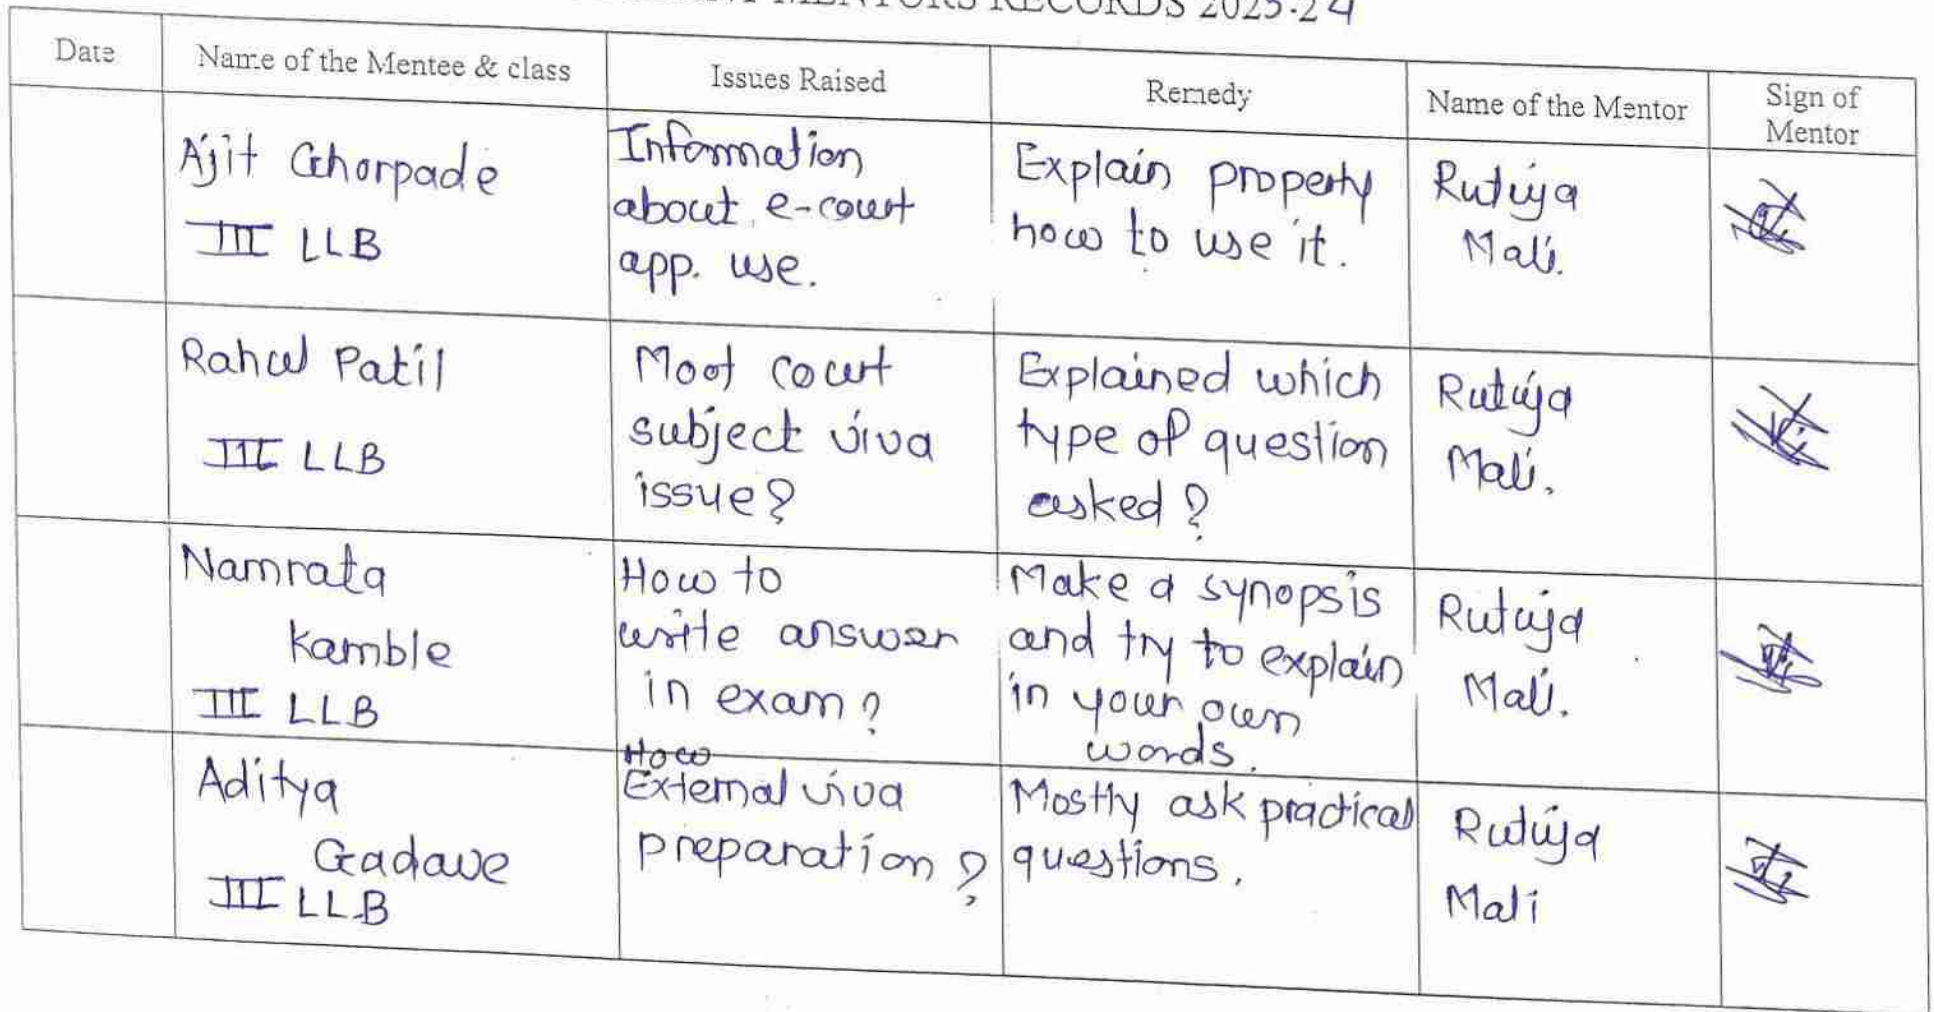 MENTORS RECORDS 2023-24
Date
Name of the Mentee & class
Issues Raised
Remedy
Name of the Mentor
Sign of
Mentor
Ajit Ghorpade
III LLB
Information
about e-court
app. use.
Explain property
how to use it.
Rutuja
Mali.
Rahul Patil
III LLB
Moot court
subject viva
issue?
Explained which
type of question
asked?
Rutuja
Mali.
Namrata
Kamble
III LLB
How to
write answer
in exam?
Make a synopsis
and try to explain
in your own
words.
Rutuja
Mali.
Aditya
Gadave
III LLB
How
External viva
preparation?
Mostly ask practical
questions.
Rutuja
Mali